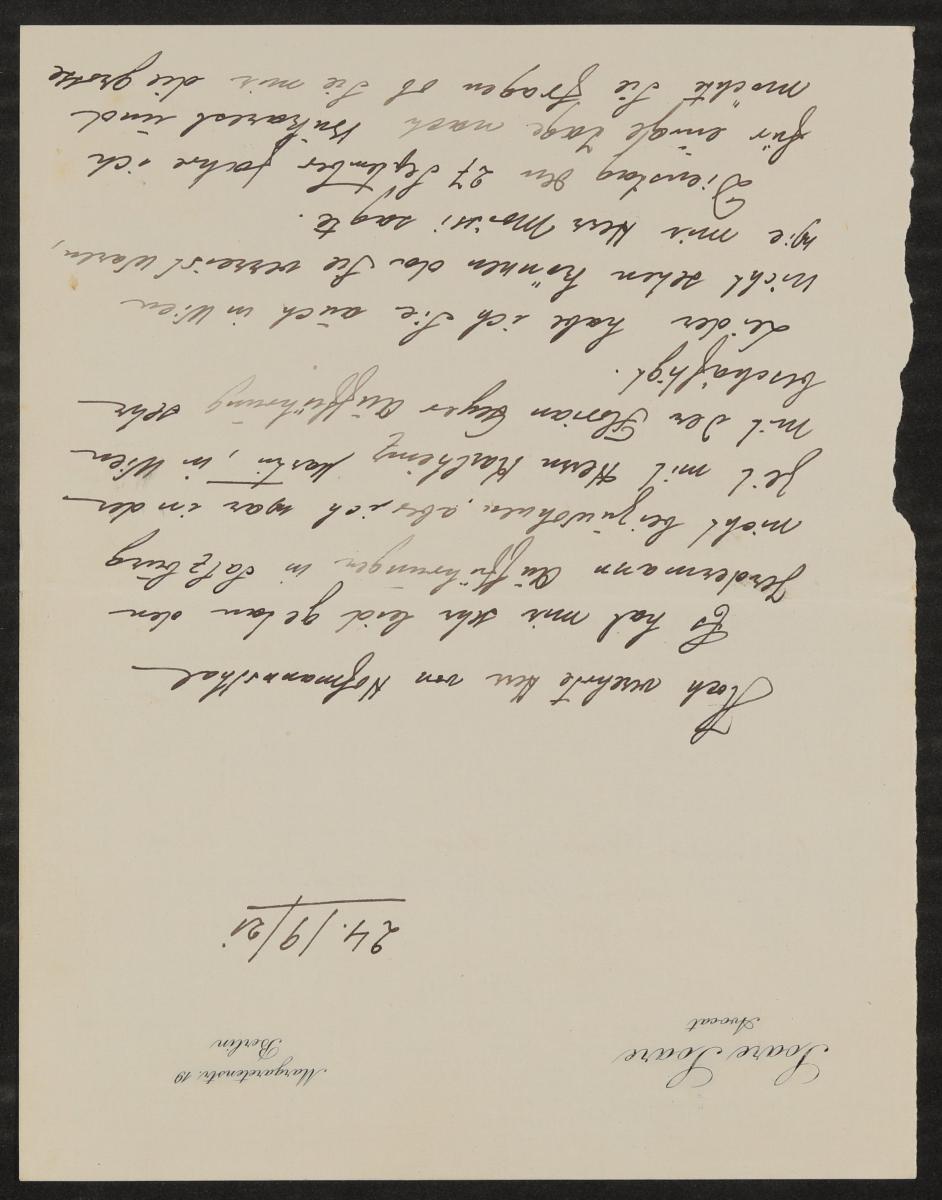 Soare Soare
Avocat
Margaretenstr. 19
Berlin
24./9/21
Hoch verehrte Herr von Hofmannsthal
Es hat mir sehr leid getan den
Jerdermann Aufführungen in Salzburg
nicht beizuwohnen, aber ich war in der
Zeit mit Herrn Karlheinz Martin, in Wien
mit der Florian Geyer Aufführung sehr
beschäftigt.
Leider habe ich Sie auch in Wien
nicht sehen können da Sie verreist waren,
wie mir Herr Moissi sagte.
Dienstag den 27 September fahre ich
für einige Tage nach Bukarest und
möchte Sie fragen ob Sie mir die grosse